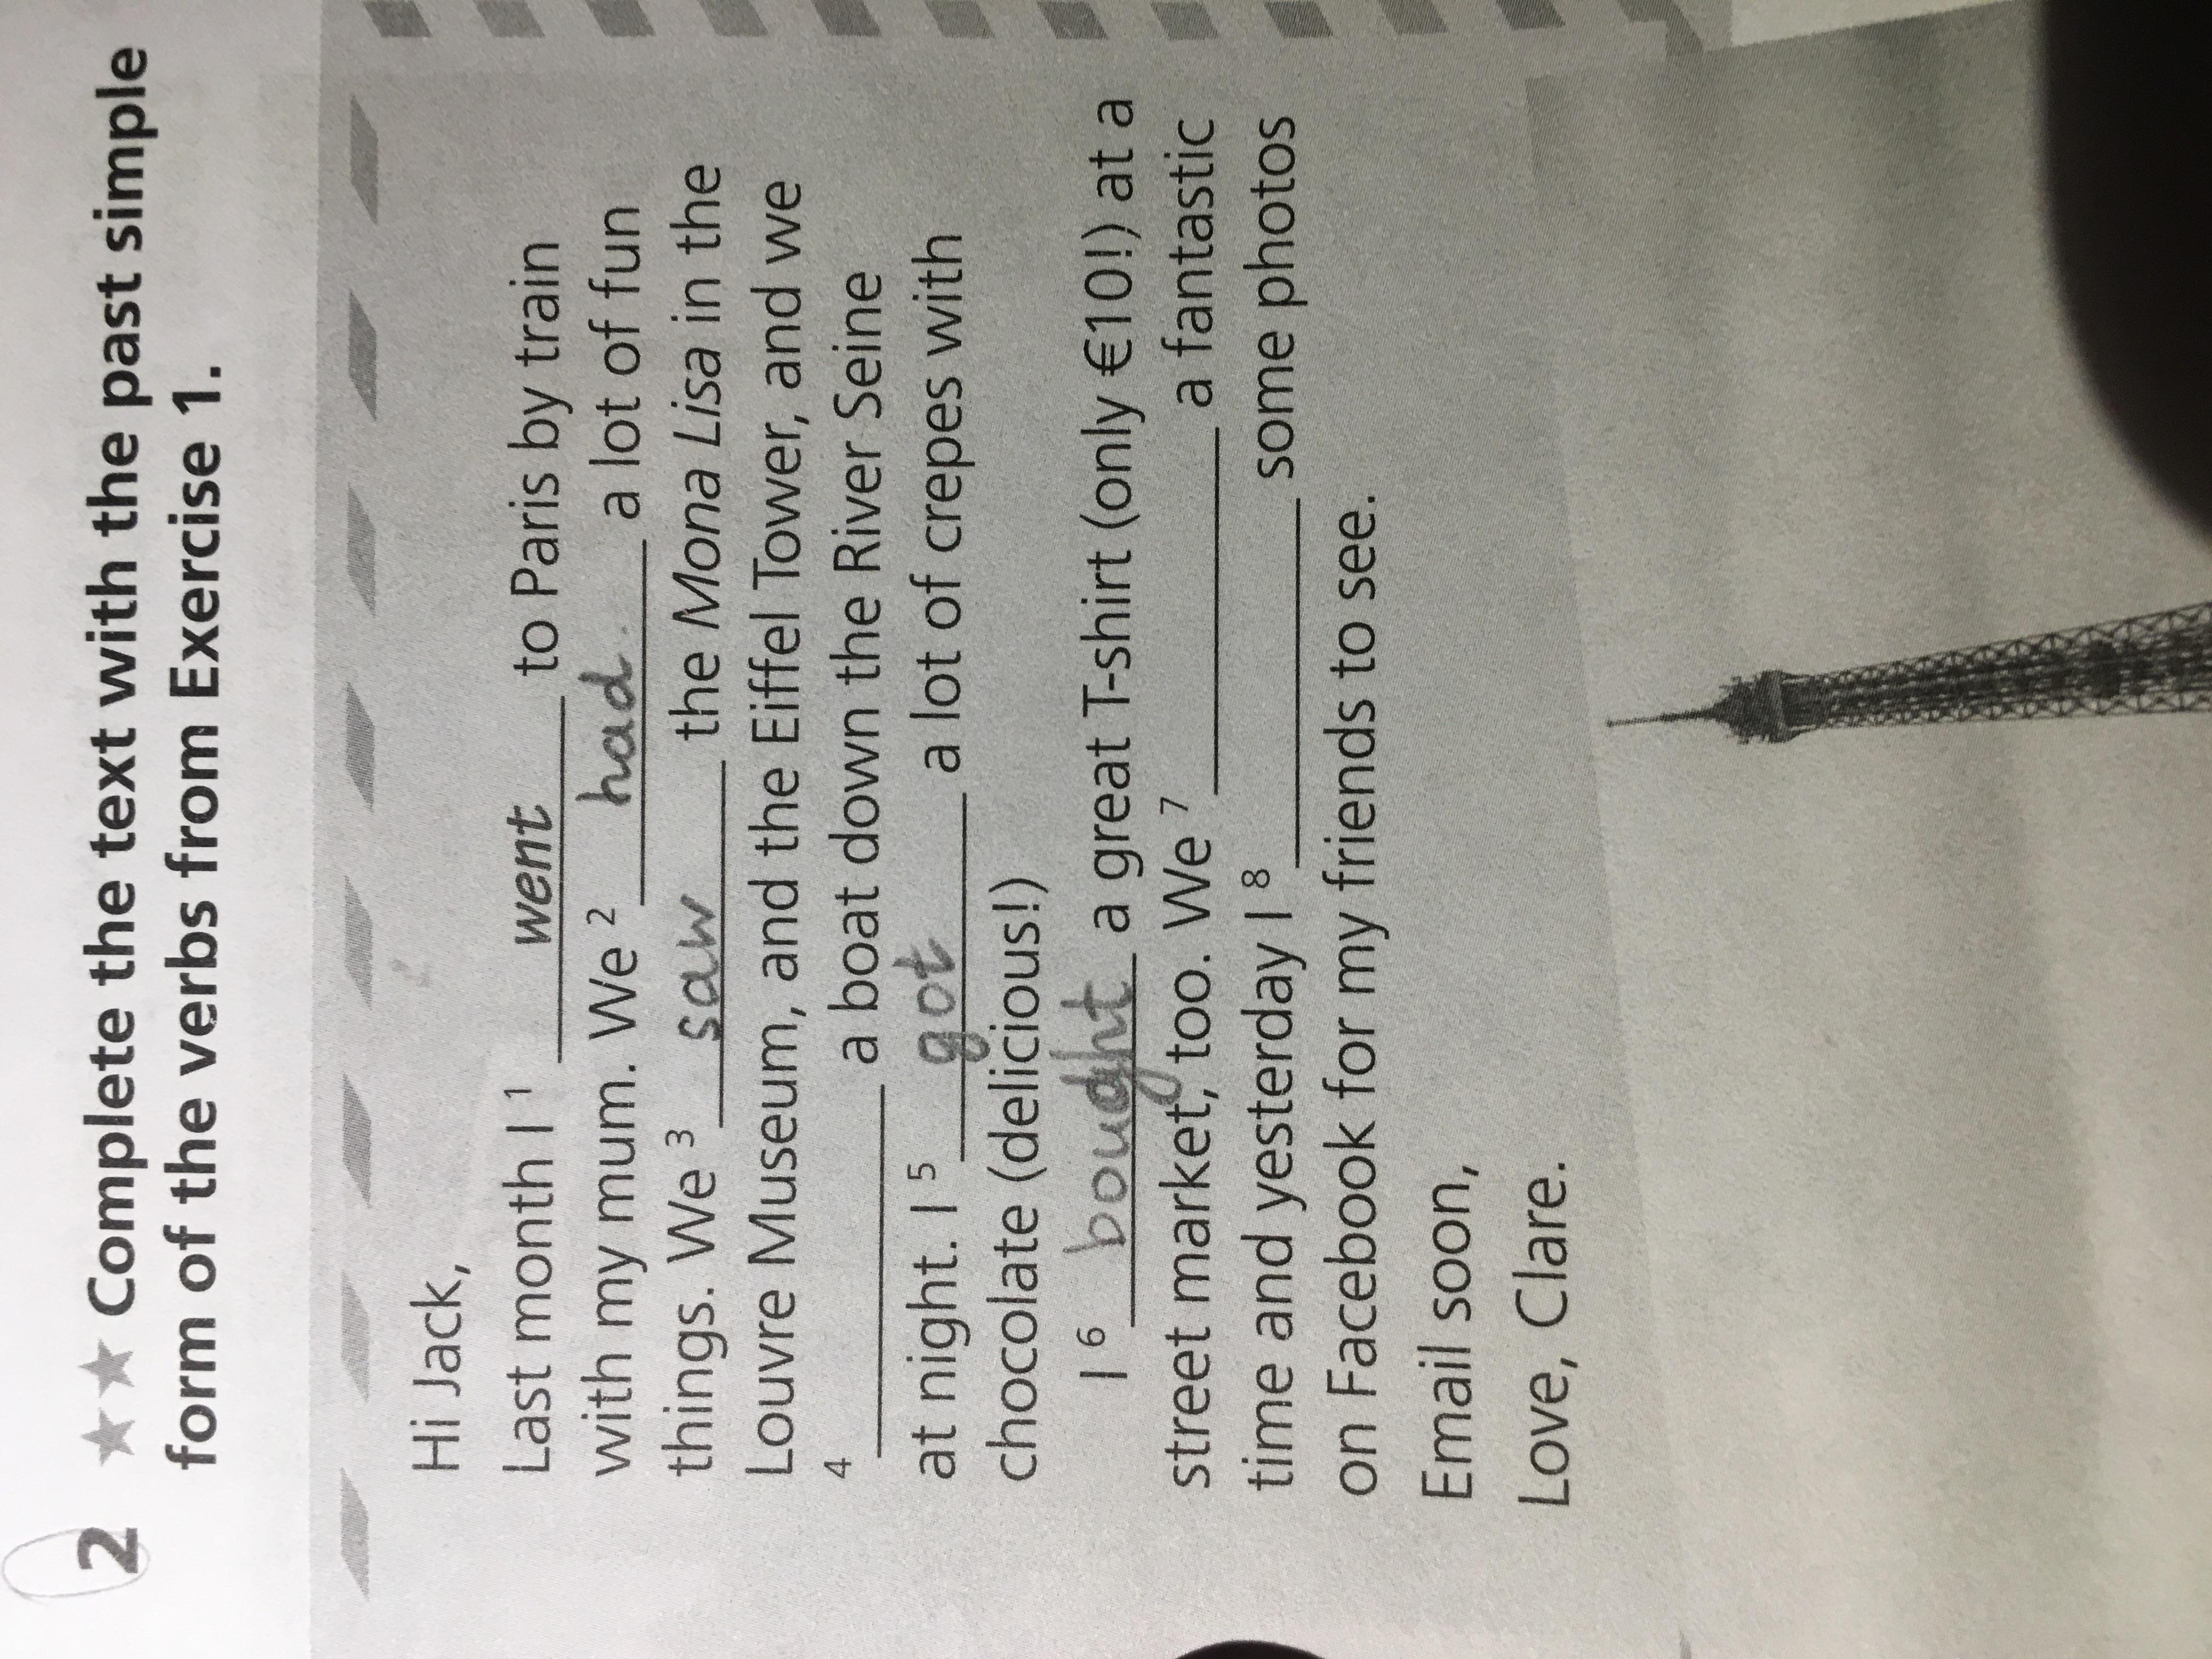 2 ★★ Complete the text with the past simple
form of the verbs from Exercise 1.
Hi Jack,
Last month I 1 went to Paris by train
with my mum. We 2 had a lot of fun
things. We 3 saw the Mona Lisa in the
Louvre Museum, and the Eiffel Tower, and we
4 ________ a boat down the River Seine
at night. I 5 got a lot of crepes with
chocolate (delicious!)
I 6 bought a great T-shirt (only €10!) at a
street market, too. We 7 ________ a fantastic
time and yesterday I 8 ________ some photos
on Facebook for my friends to see.
Email soon,
Love, Clare.